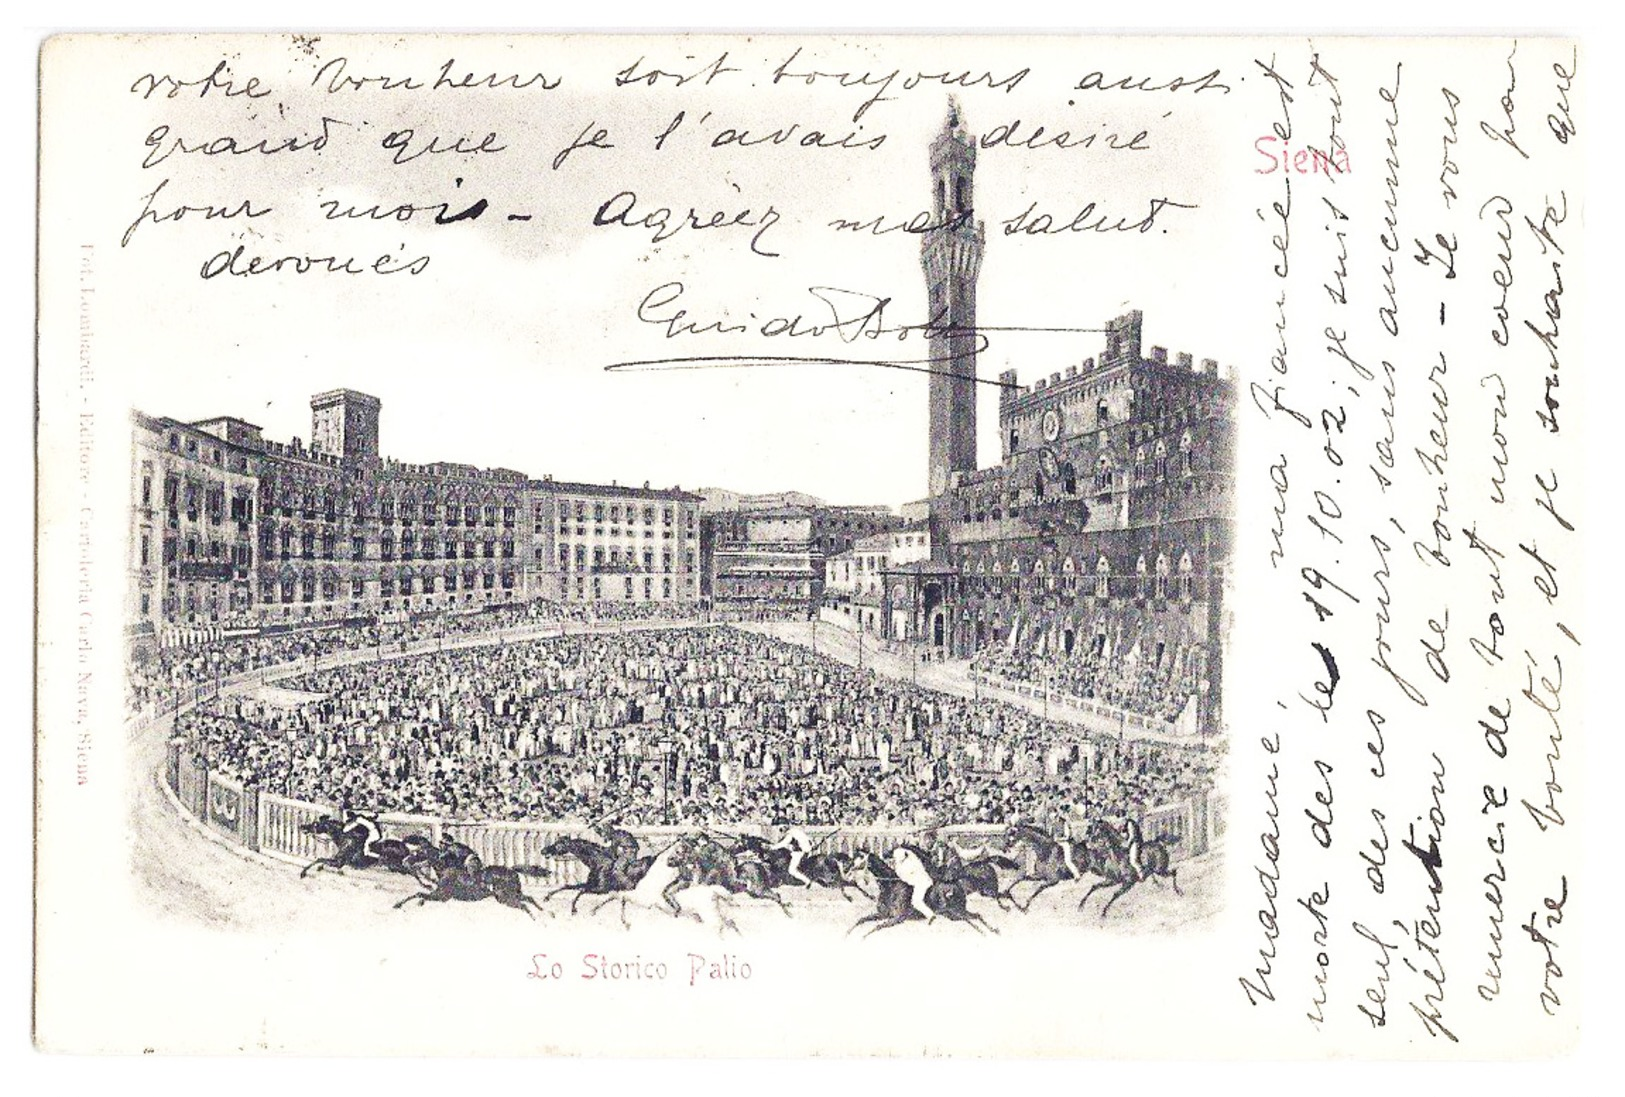 Madame, ma fiancée est
morte des les 19.10.02; je suis tout
seul, des ces jours, sans aucunne
prétention de bonheur - Je vous
umercie de tout mon coeur pour
votre bonté, et je souhaite que
votre bonheur soit toujours aussi
grand que je l'avais désiré
pour mois - Agréez mes salut.
dévoués
Guido
Siena
Lo Storico Palio
Fot. Lombardi. - Editore - Cartoleria Carlo Nava, Siena